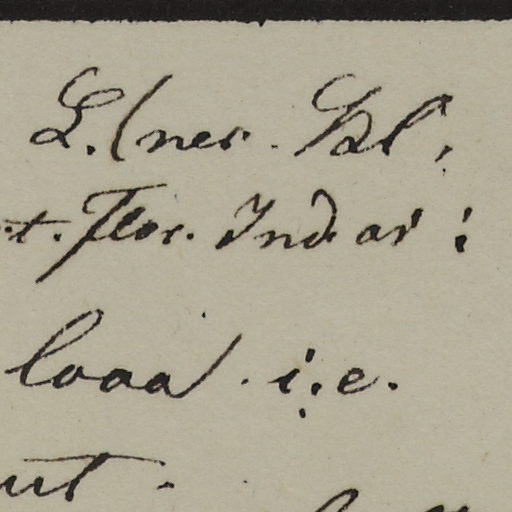 L. (ner.
t. Flor. Ind. or:
loaa). i.e.
ut.